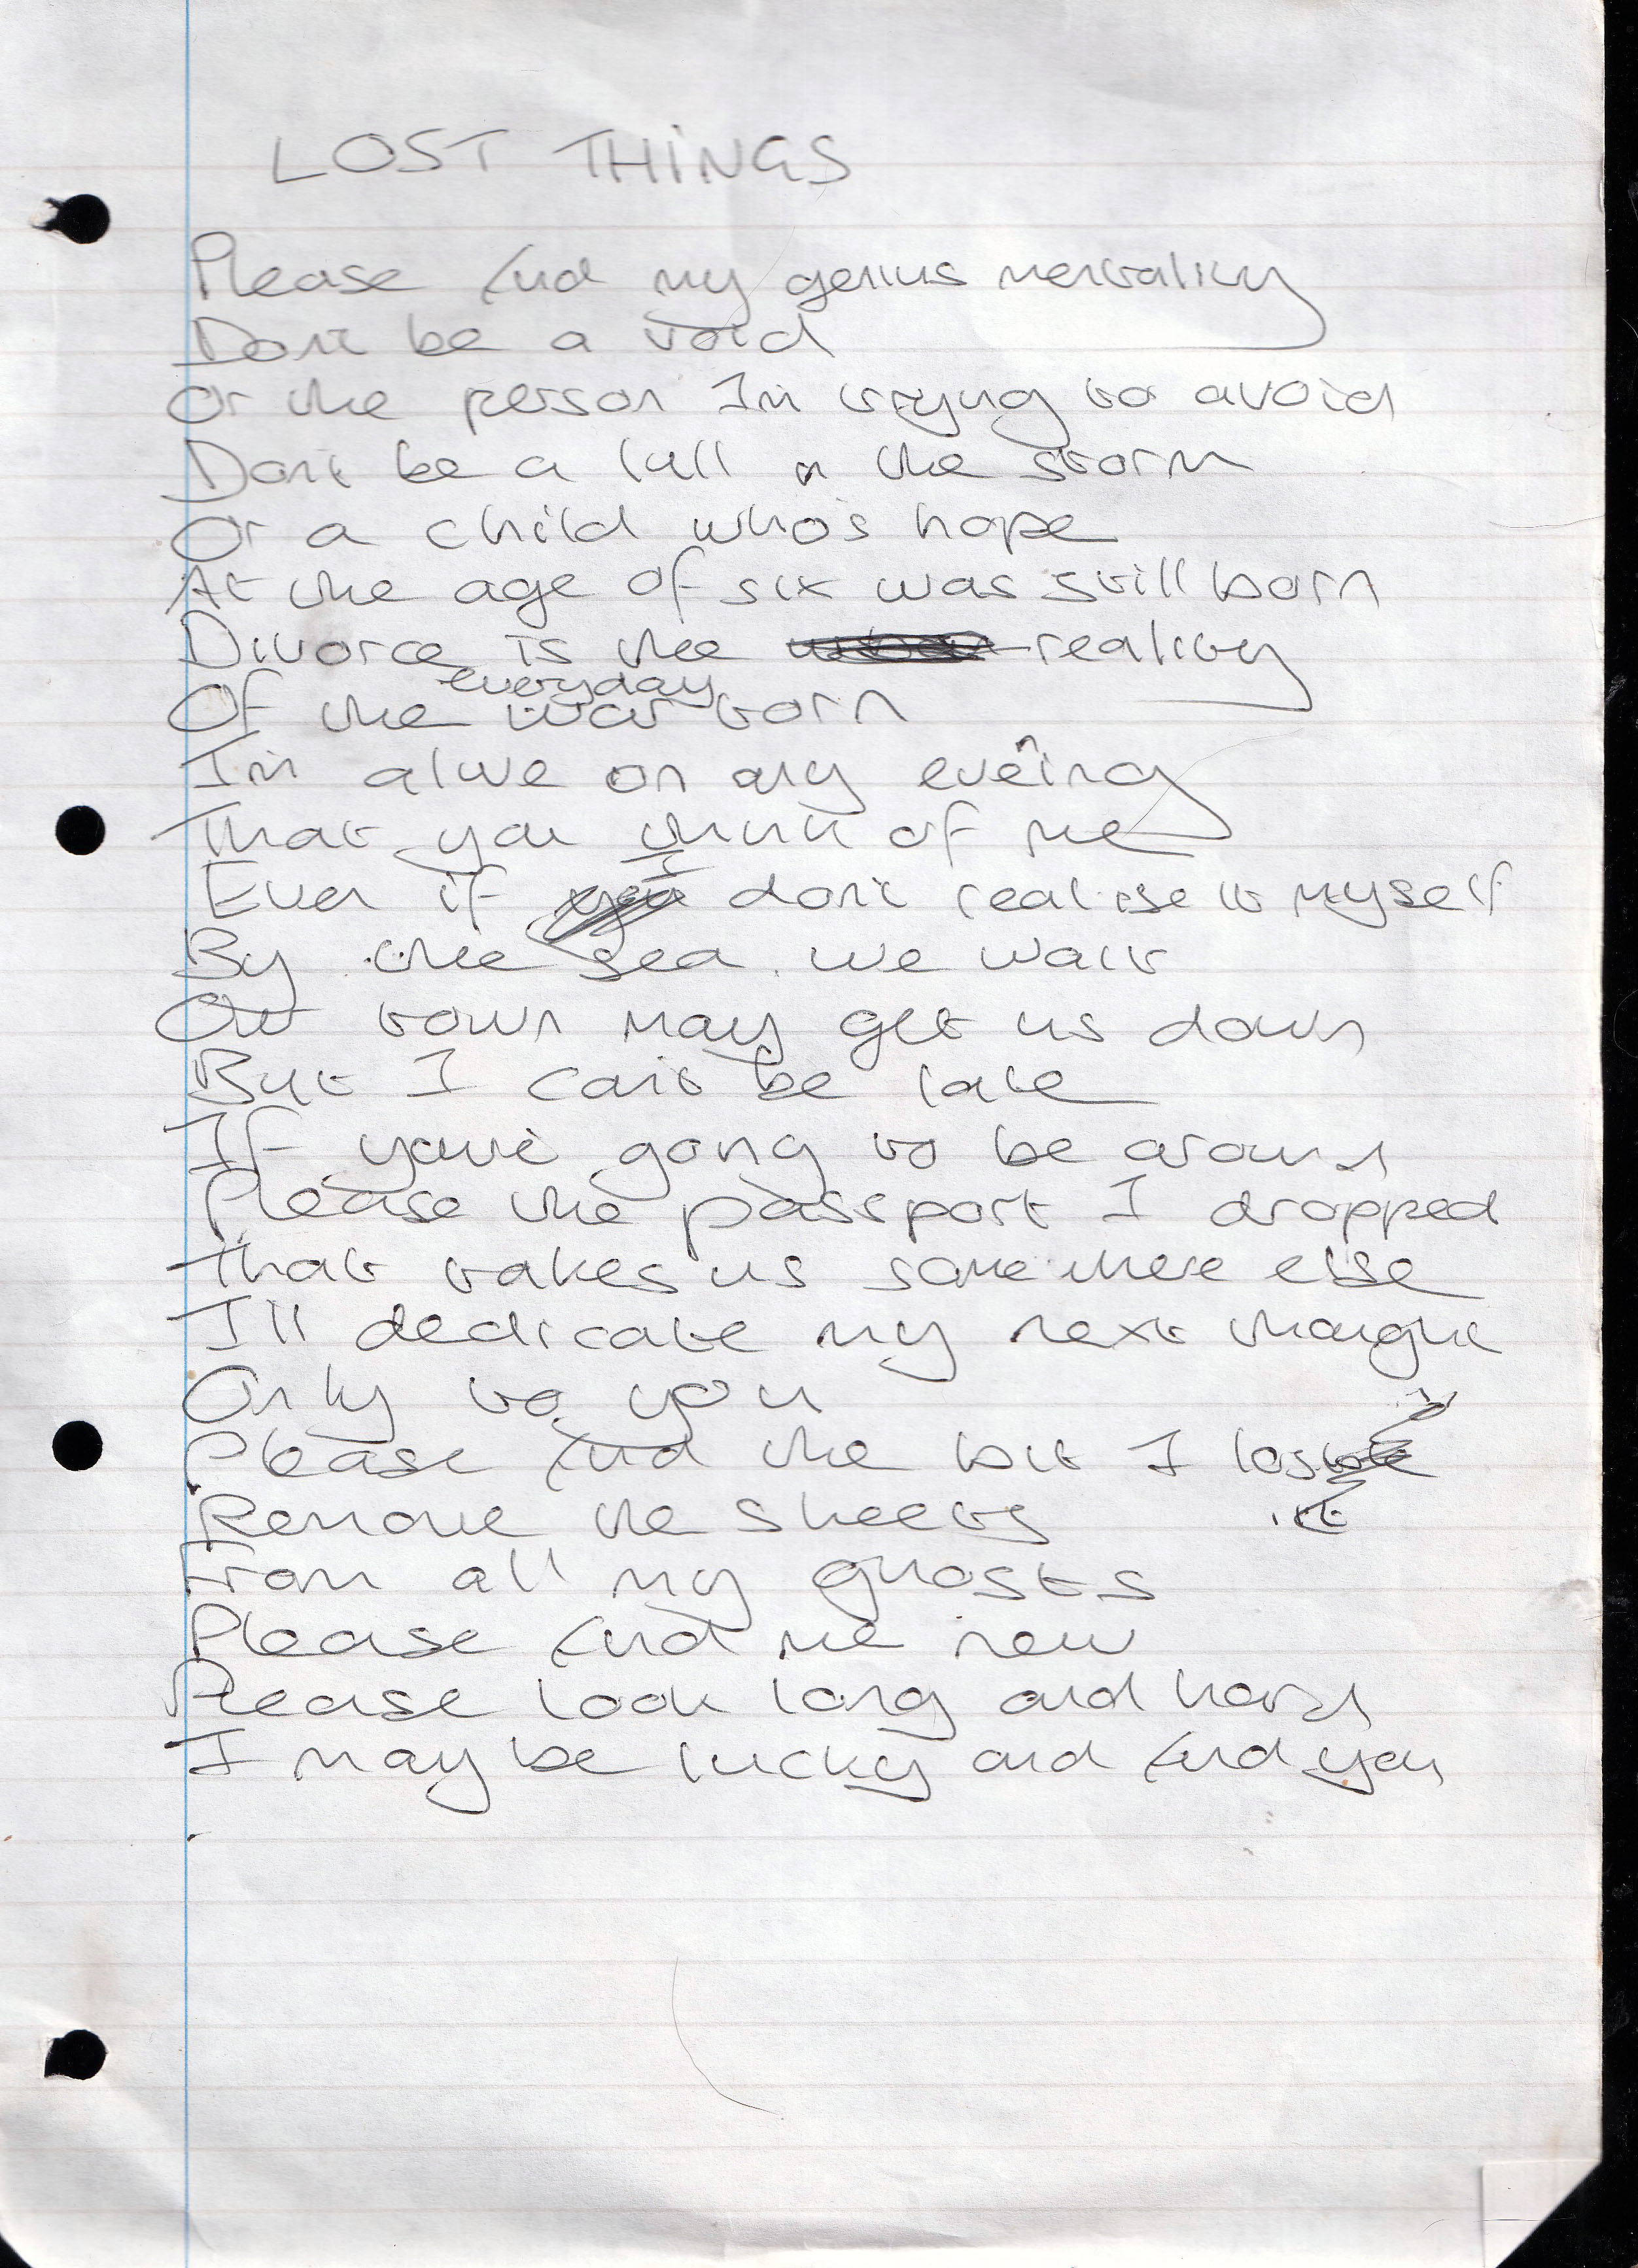 LOST THINGS
Please find my genius mentality
Don't be a void
Or the person I'm trying to avoid
Don't be a lull in the storm
Or a child who's hope
At the age of six was still born
Divorce is the reality
everyday
Of the war torn
I'm alive on any evening
That you think of me
Even if I don't realise it myself
By the sea we walk
Our town may get us down
But I can't be late
If your'e going to be around
Please the passport I dropped
That takes us somewhere else
I'll dedicate my next thought
Only to you
Please find the bit I lost
Remove the sheets
From all my ghosts
Please find me new
Please look long and hard
I may be lucky and find you